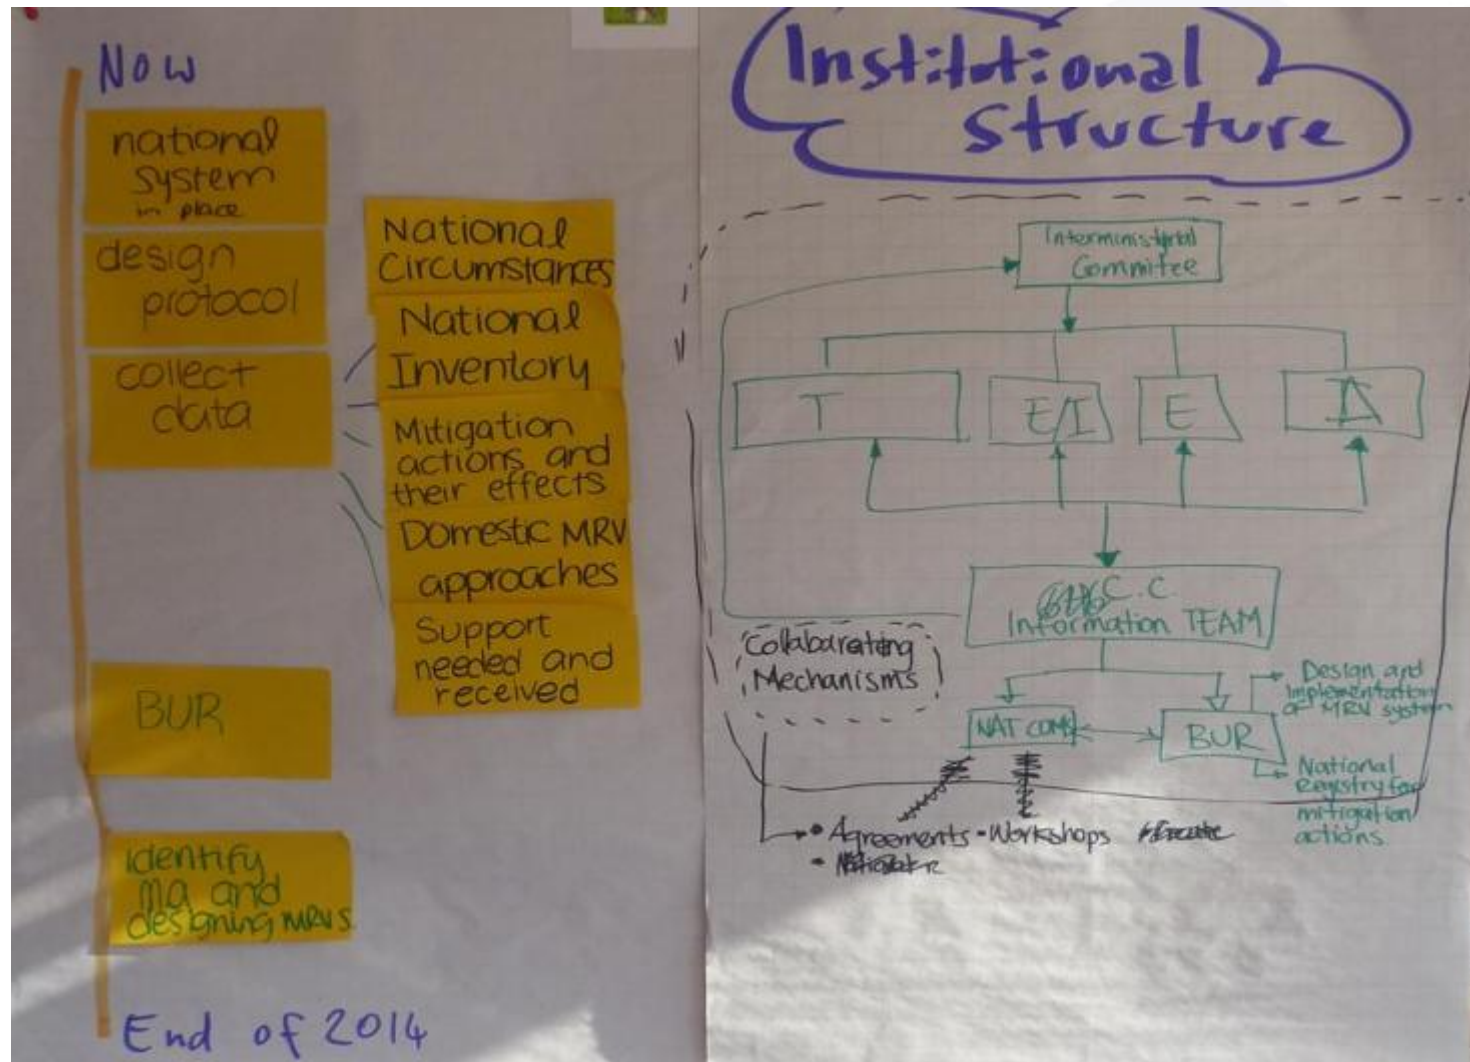 Now
national
system
in place
design
protocol
collect
data
BUR
identify
MA and
designing MRVs.
End of 2014
National
Circumstances
National
Inventory
Mitigation
actions and
their effects
Domestic MRV
approaches
Support
needed and
received
Institutional
Structure
Interministerial
Commitee
T
E/I
E
C.C.
Information TEAM
Collabarating
Mechanisms
NAT COMS
BUR
Design and
implementation
of MRV system
National
Registry for
mitigation
actions.
• Agreements - Workshops